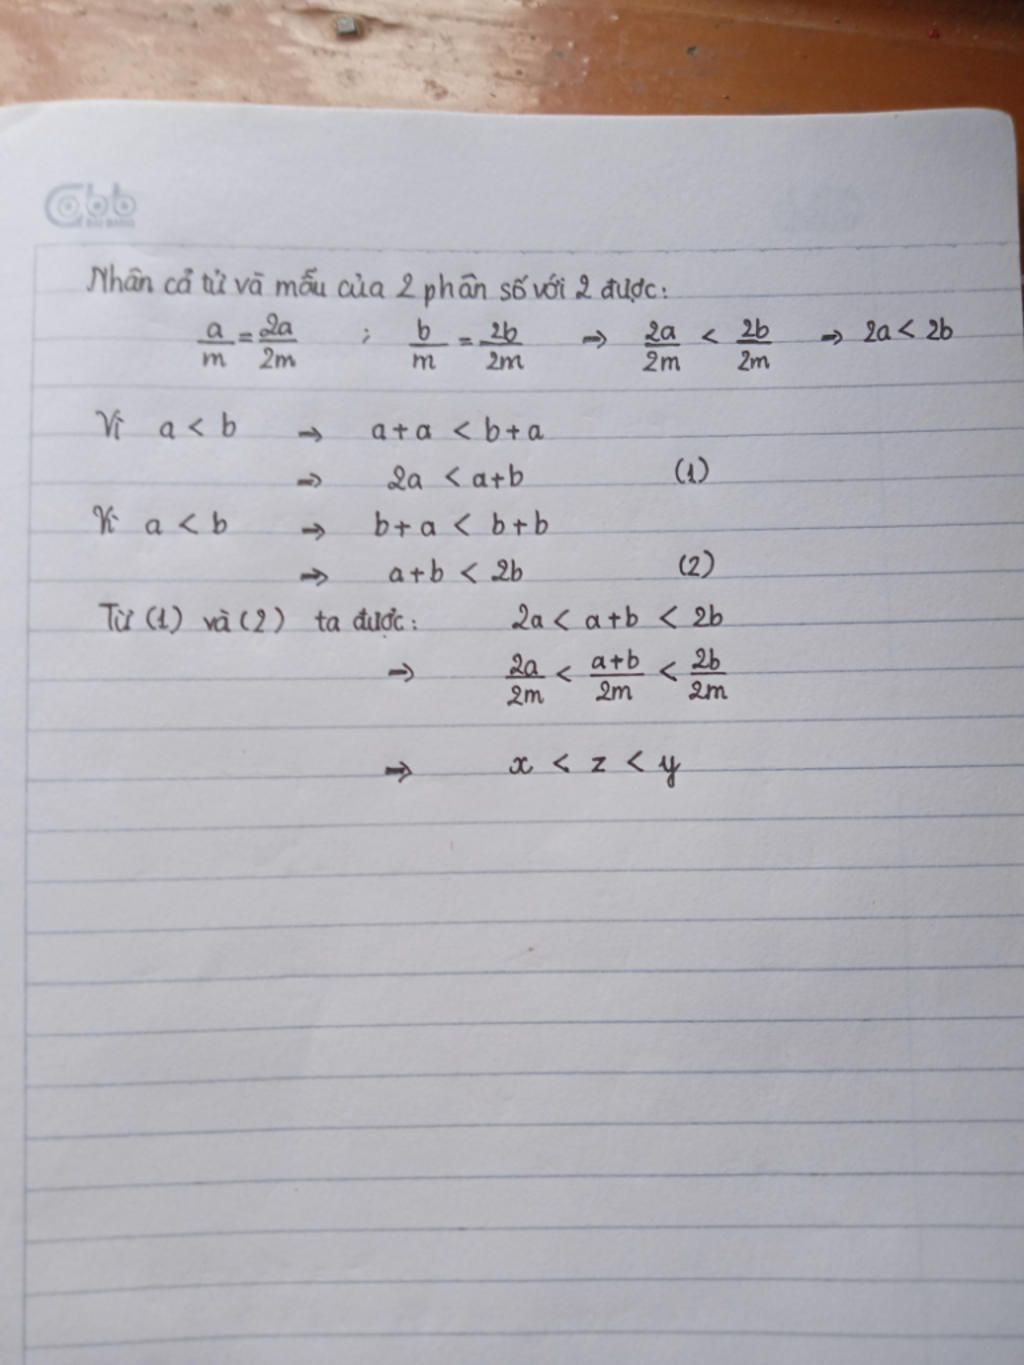 Nhân cả tử và mẫu của 2 phân số với 2 được:
a/m = 2a/2m ; b/m = 2b/2m ⇒ 2a/2m < 2b/2m ⇒ 2a < 2b
Vì a < b ⇒ a+a < b+a
⇒ 2a < a+b (1)
Vì a < b ⇒ b+a < b+b
⇒ a+b < 2b (2)
Từ (1) và (2) ta được: 2a < a+b < 2b
⇒ 2a/2m < a+b/2m < 2b/2m
⇒ x < z < y